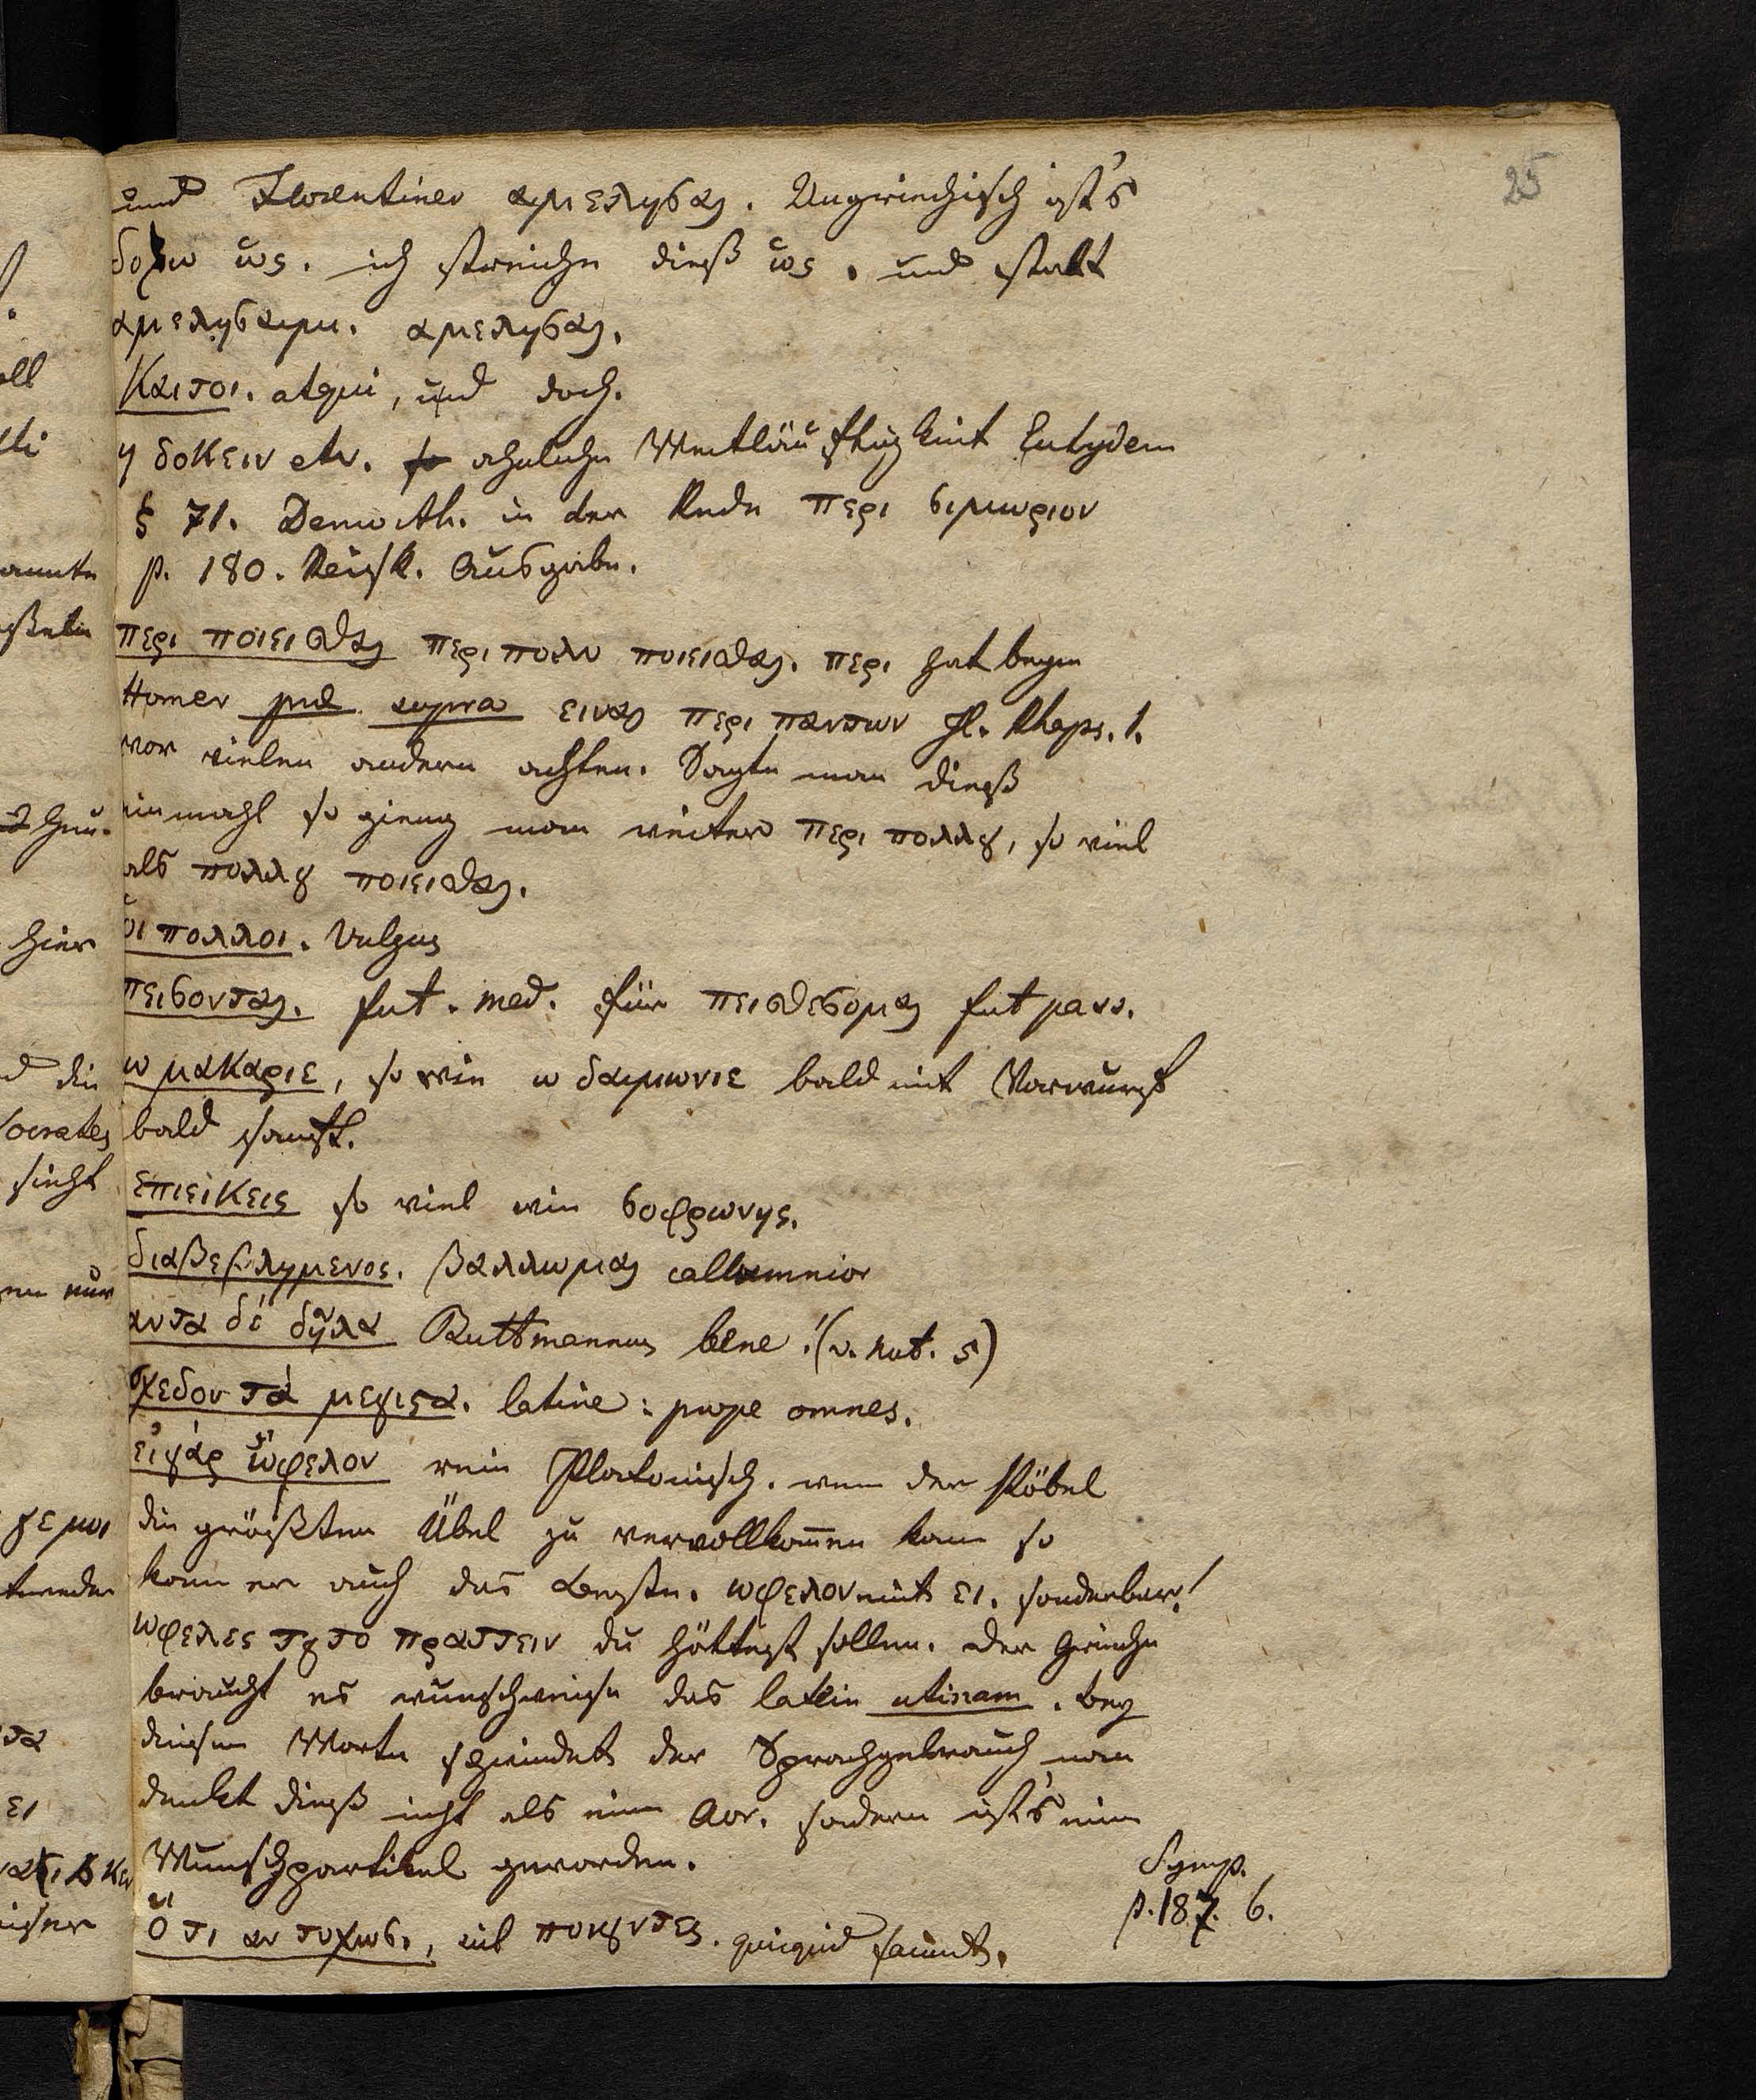 25
und Florentiner αμελησαι. Ungriechisch ist's
δοξω ὡς. ich streiche dieß ὡς. und statt
αμελησαιμι. αμελησαι.
Καιτοι. atqui, und doch.
η δοκειν etc. ähnliche Weitläuftigkeit Eutydem
§ 71. Demosth. in der Rede περι σιμωριον
p. 180. Reisk. Ausgabe.
περι ποιεισθαι περι πολυ ποιεισθαι. περι hat beym
Homer supra ειναι περι παντων Il. Rhaps. 1.
vor vielen andern achten. Sagte man dieß
einmahl so gieng man weiter περι πολλȣ, so viel
als πολλȣ ποιεισθαι.
ὁι πολλοι. Vulgus
πεισονται. fut. med. für πεισθεσομαι fut pass.
ω μακαριε, so wie ω δαιμωνιε bald mit Vorwurf
bald sanft.
επιεικεις so viel wie σοφρωνης.
διαβεβλημενος. βαλλωμαι callumnior
αυτα δὲ δῆλα Buttmannus bene! (v. not. 5)
σχεδον τὰ μεγιϛα. latine: prope omnes.
εἰ γὰρ ὤφελον rein Platonisch. wenn der Pöbel
die größten Übel zu vervollkom̅en kann so
kann er auch das beste. ωφελον mit ει. sonderbar!
ωφελες τȣτο πραττειν du hättest sollen. der Grieche
braucht es wunschweise das latein utinam. bey
diesem Worte der Sprachgebrauch man
denkt dieß nicht als einen Aor. sondern ist's eine
Wunschpartikel geworden.
Ὅ τι αν τυχωσι, sui ποιȣντες. quicquid faciunt.
Symp.
p. 187. 6.